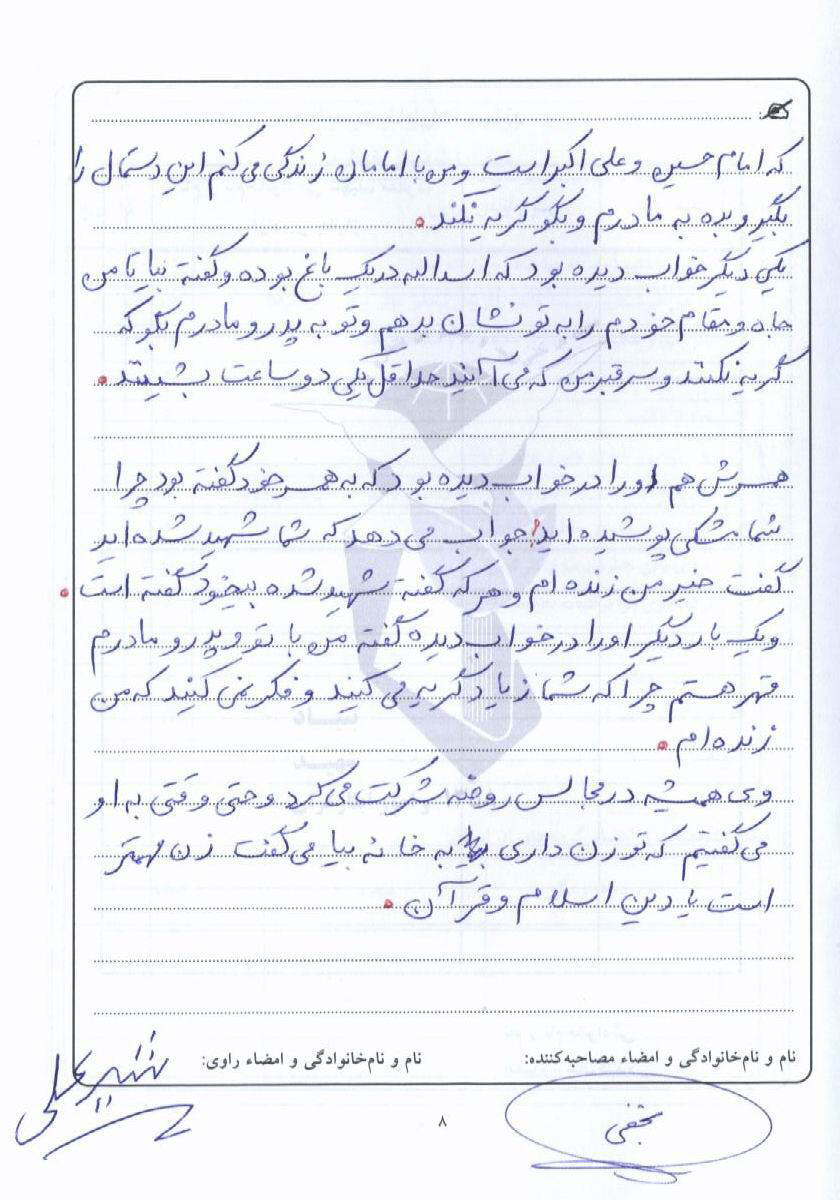 که امام حسین و علی اکبر است و من با امامان زندگی می کنم این دستمال را
بگیر و بده به مادرم و بگو گریه نکند.
یکی دیگر خواب دیده بود که اسداله در یک باغ بوده و گفته بیا تا من
جاه و مقام خودم را به تو نشان بدهم و تو به پدر و مادرم بگو که
گریه نکنند و سر قبر من که می آیند حداقل یکی دو ساعت بشینند.
همسرش هم او را در خواب دیده بود که به همسر خود گفته بود چرا
شما مشکی پوشیده اید؟ جواب می دهد که شما شهید شده اید
گفت خیر من زنده ام و هر که گفته شهید شده بیخود گفته است.
و یک بار دیگر او را در خواب دیده گفته من با تو و پدر و مادرم
قهر هستم چرا که شما زیاد گریه می کنید و فکر نمی کنید که من
زنده ام.
وی همیشه در مجالس روضه شرکت می کرد و حتی وقتی به او
می گفتیم که تو زن داری به خانه بیا می گفت زن مهمتر
است یا دین اسلام و قرآن.
نام و نام‌خانوادگی و امضاء مصاحبه‌کننده: نام و نام‌خانوادگی و امضاء راوی:
نجفی
۸